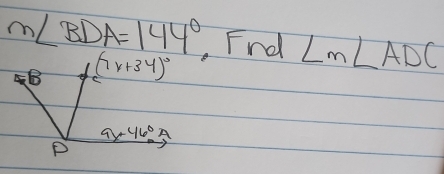 m∠ BDA=144°. Fnd ∠m∠ADC
(7x+34)°
B
C
9x+46° A
D